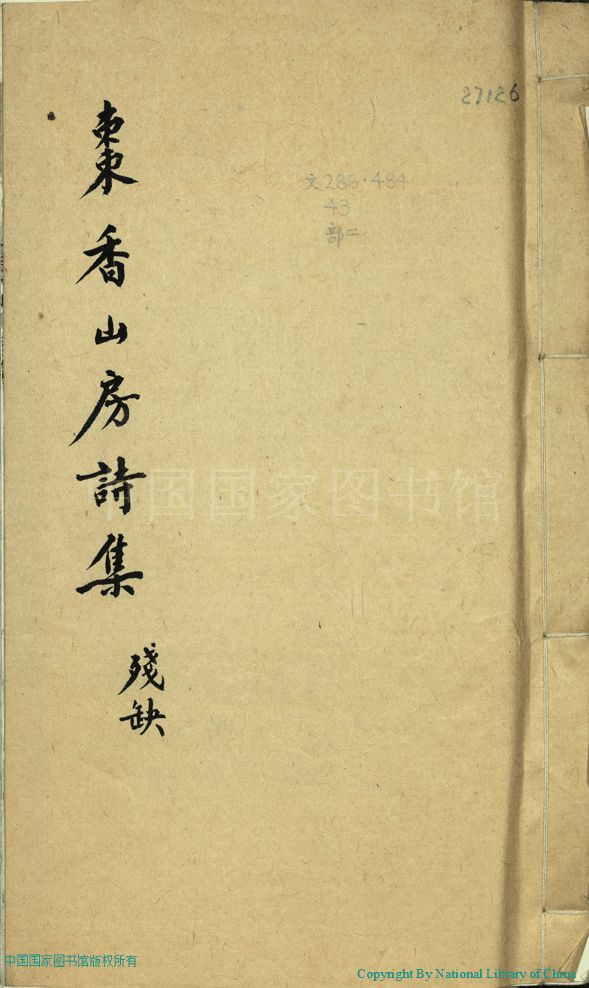 27126
文286·484
43
部二
棗香山房詩集
殘缺
中国国家图书馆
中国国家图书馆版权所有
Copyright By National Library of China